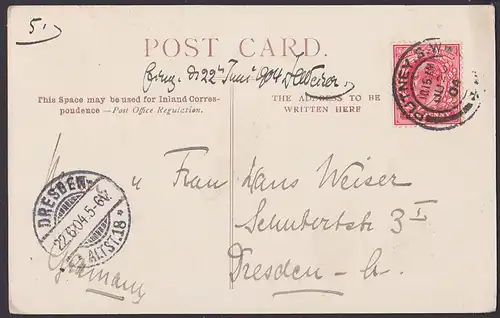 5.)
POST CARD.
Empf. d. 22ten Juni 904
This Space may be used for Inland Corres-
pondence —Post Office Regulation.
THE ADDRESS TO BE
WRITTEN HERE
PUTNEY.S.W.
10.15 AM
04
u Frau Hans Weiser
Schubertstr 3 I
Dresden - A.
Germany
DRESDEN-
22.6.04. 5-6V.
ALTST. 18